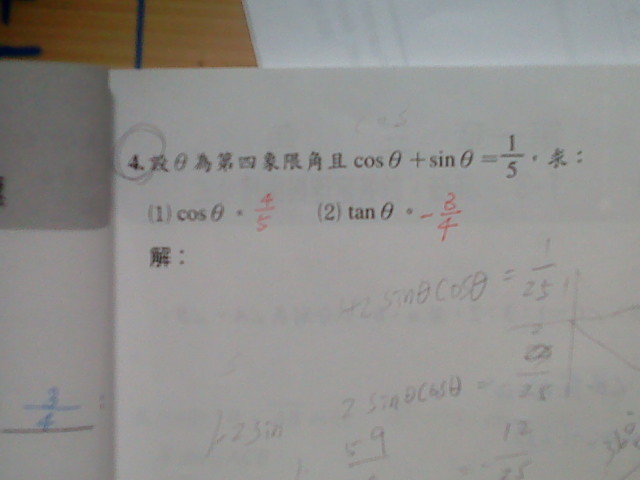 4. 設θ為第四象限角且 cosθ + sinθ = 1/5，求：
(1) cosθ。 4/5 (2) tanθ。 -3/4
解：
1+2 sinθ cosθ = 1/25
2 sinθ cosθ =
3/4 :
1-2 sin
12/25